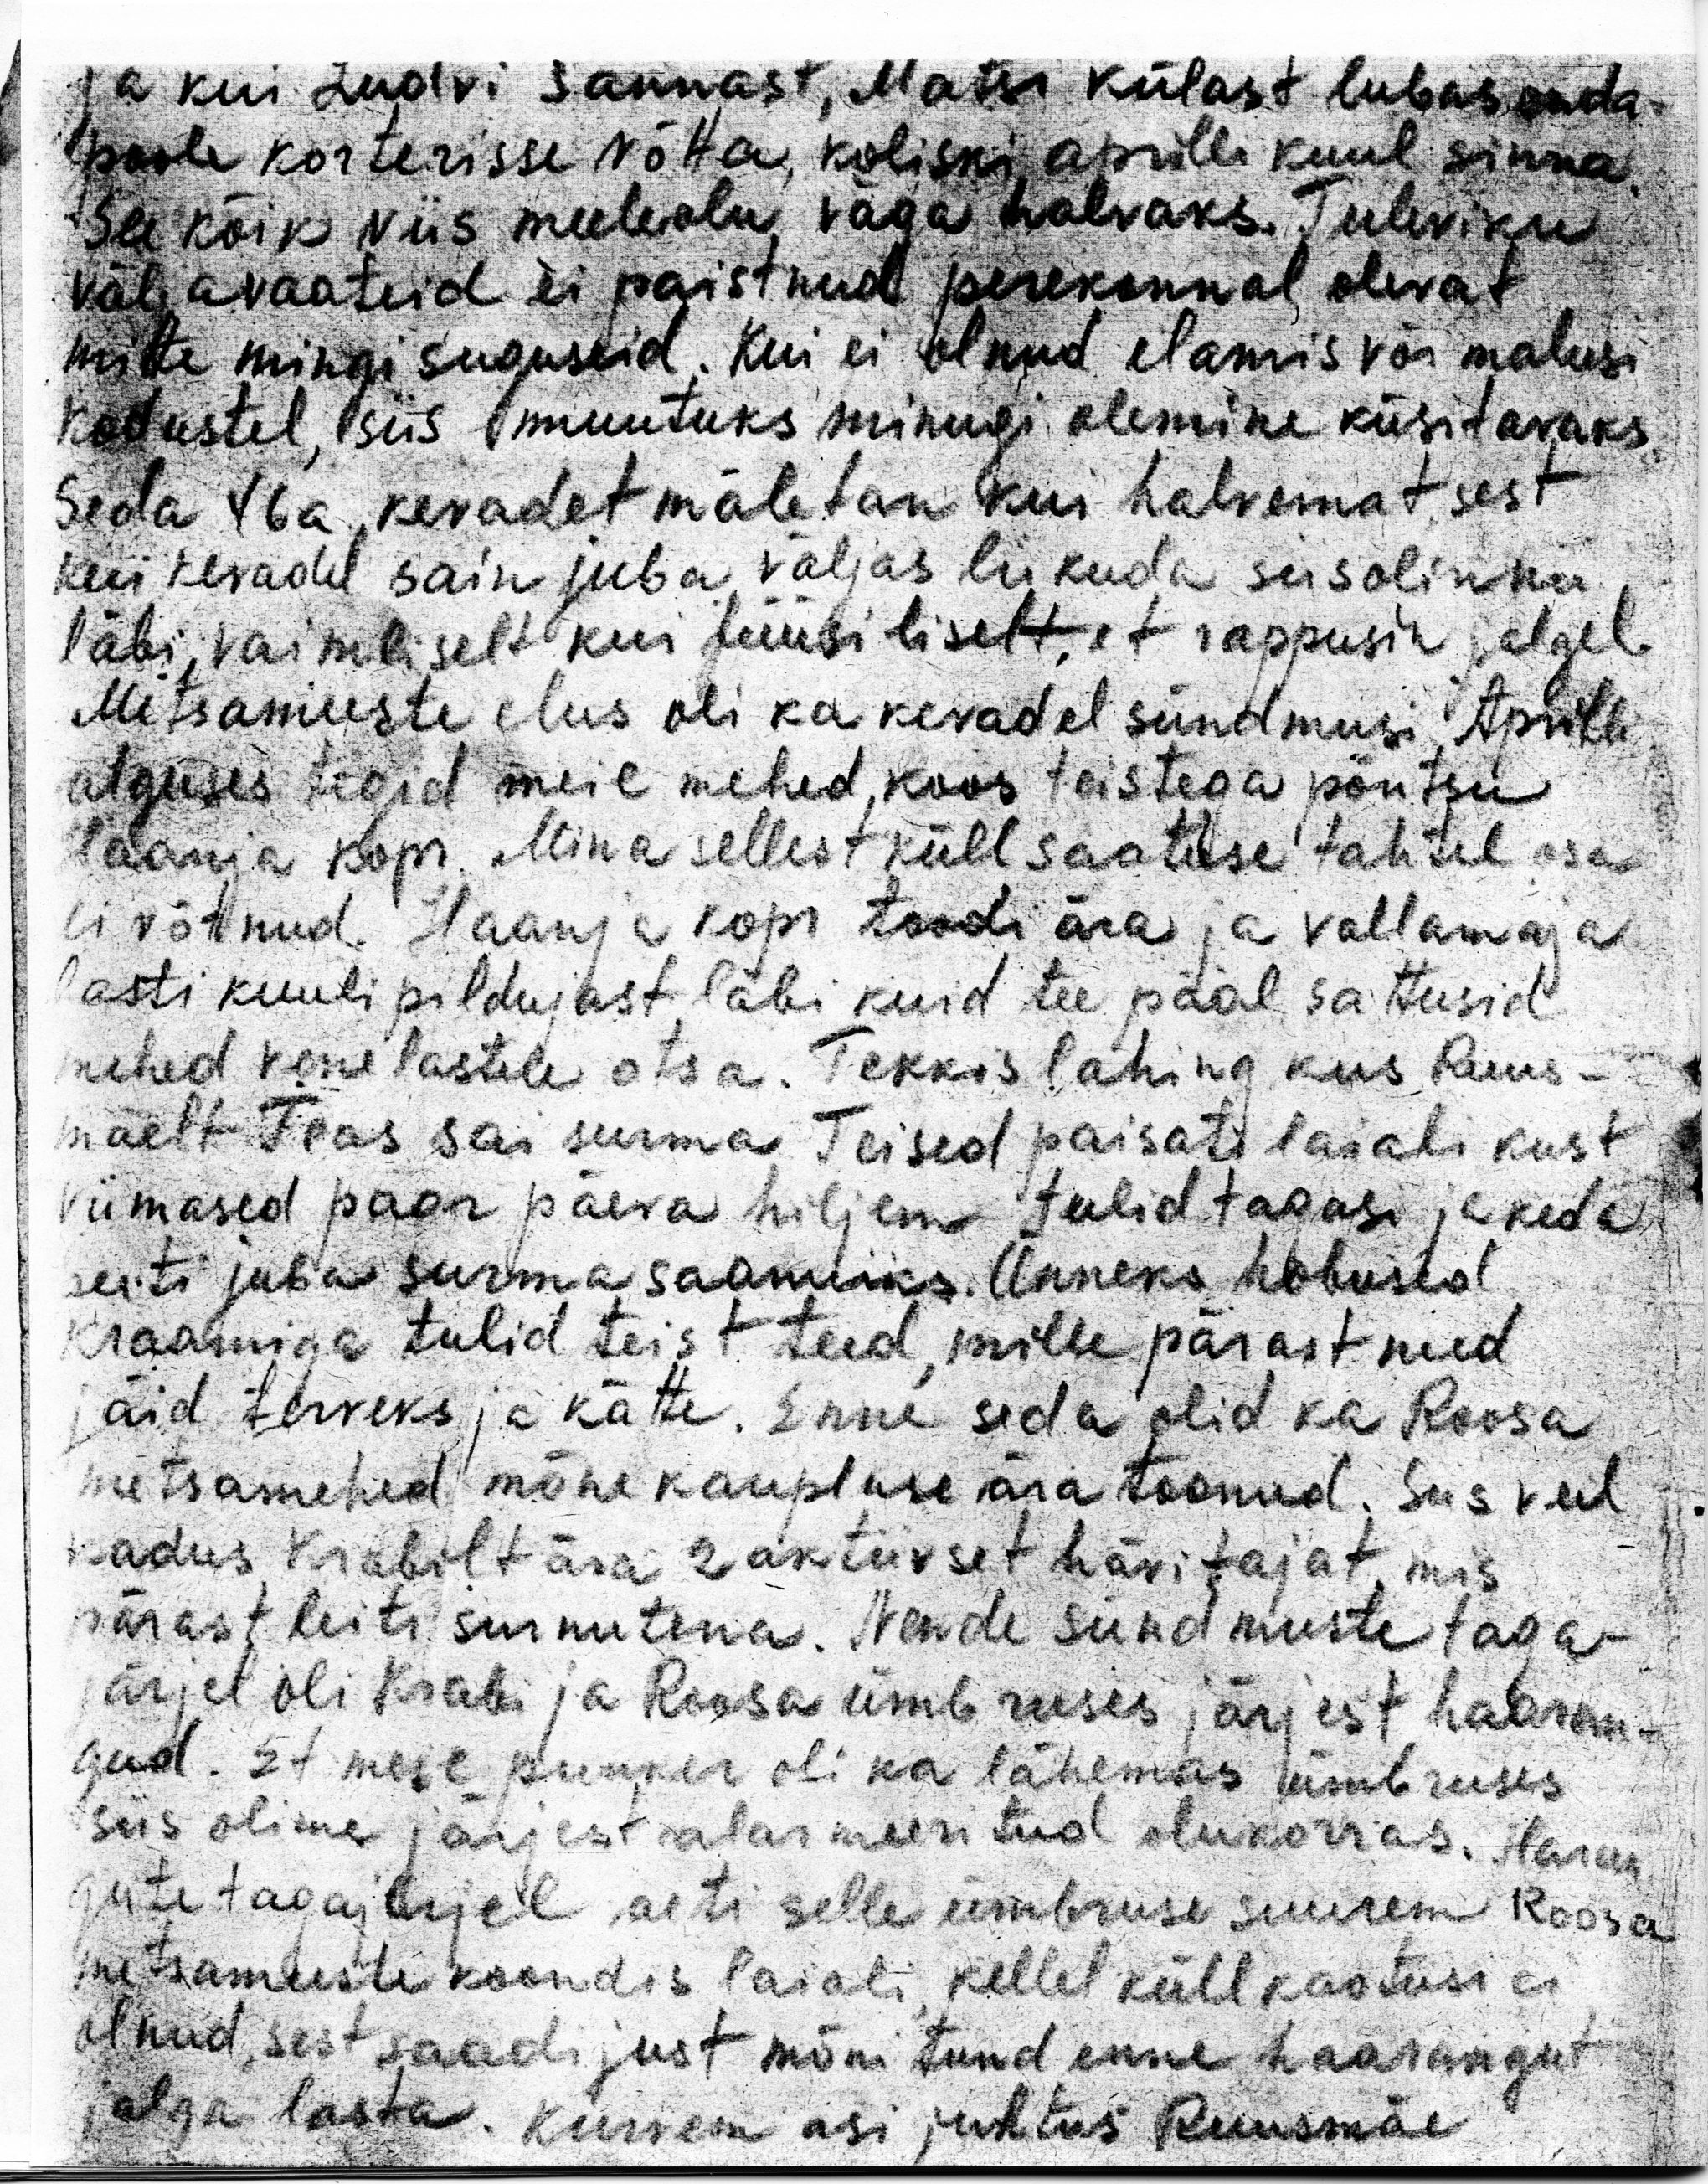 ja kui Ludvi Sannast, Matsi külast lubas enda-
poole korterisse võtta, koliski aprilli kuul sinna.
See kõik viis meeleolu väga halvaks. Tuleviku
väljavaateid ei paistnud perekonnal olevat
mitte mingisuguseid. Kui ei olnud elamisvõimalusi
kodustel, siis muutuks minugi olemine küsitavaks.
Seda 46a. kevadet mäletan kui halvemat, sest
kui kevadel sain juba väljas liikuda siis olin
läbi, vaimliselt kui füüsiliselt, et rappusin jalgel.
Metsameeste elus oli ka kevadel sündmusi. Aprilli
alguses tegid meie mehed, koos teistega põntsu
Haanja kopr. Mina sellest küll saatuse tahtel osa
ei võtnud. Haanja kopr toodi ära ja vallamaja
lasti kuulipildujast läbi kuid tee pääl sattusid
mehed venelastele otsa. Tekkis lahing kus Ruus-
mäelt Tõas sai surma. Teised paisati laiali kust
viimased paar päeva hiljem tulid tagasi ja keda
peeti juba surma saanuiks. Õnneks hobused
kraamiga tulid teist teed, mille pärast need
jäid terveks ja kätte. Enne seda olid ka Roosa
metsamehed mõne kaupluse ära toonud. Siis veel
kadus Krabilt ära 2 aktiivset hävitajat, mis
pärast leiti surnutena. Nende sündmuste taga-
järjel oli Krabi ja Roosa ümbruses järjest haaran-
gud. Et meie punker oli ka lähemas ümbruses
siis olime järjest alarmeeritud olukorras. Haran
gute tagajärjel aeti selle ümbruse suurem Roosa
metsameeste koondis laiali, kellel küll kaotusi ei
olnud, sest saadi just mõni tund enne haarangut
jalga lasta. Kurvem asi juhtus Ruusmäe